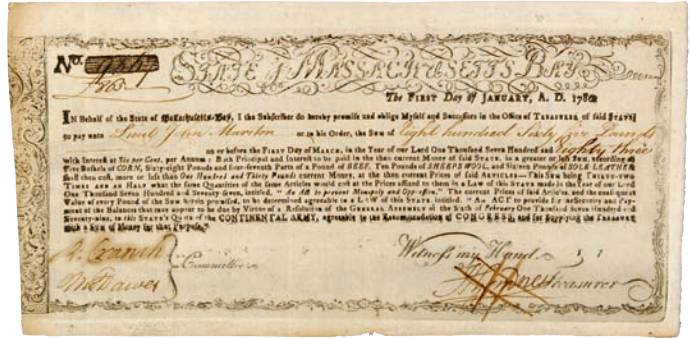 No.
STATE of MASSACHUSETTS BAY
The FIRST Day of JANUARY, A. D. 1780
IN Behalf of the State of Massachusetts-Bay, I the Subscriber do hereby promise and oblige Myself and Successors in the Office of TREASURER of said STATE,
to pay unto Lieut John Marston or to his Order, the Sum of Eight hundred Sixty five Pounds
on or before the FIRST Day of MARCH, in the Year of our Lord One Thousand Seven Hundred and Eighty three
with Interest at Six per Cent. per Annum: Both Principal and Interest to be paid in the then current Money of said STATE, in a greater or less SUM, according as
Five Bushels of CORN, Sixty-eight Pounds and four-seventh Parts of a Pound of BEEF, Ten Pounds of SHEEPS WOOL, and Sixteen Pounds of SOLE LEATHER
shall then cost, more or less than One Hundred and Thirty Pounds current Money, at the then current Prices of said ARTICLES—This SUM being THIRTY-TWO
TIMES AND AN HALF what the same Quantities of the same Articles would cost at the Prices affixed to them in a LAW of this STATE made in the Year of our Lord
One Thousand Seven Hundred and Seventy-seven, intitled, "An ACT to prevent Monopoly and Oppression." The current Prices of said Articles, and the consequent
Value of every Pound of the SUM herein promised, to be determined agreeable to a LAW of this STATE, intitled, "An ACT to provide for the Security and Pay-
ment of the Balances that may appear to be due by Virtue of a Resolution of the GENERAL ASSEMBLY of the Sixth of February One Thousand Seven Hundred and
Seventy-nine, to this STATE'S Quota of the CONTINENTAL ARMY, agreeable to the Recommendation of CONGRESS, and for Supplying the TREASURY
with a SUM of Money for that Purpose."
R. Cranch
Committee
Witness my Hand
Dawes
Treasurer